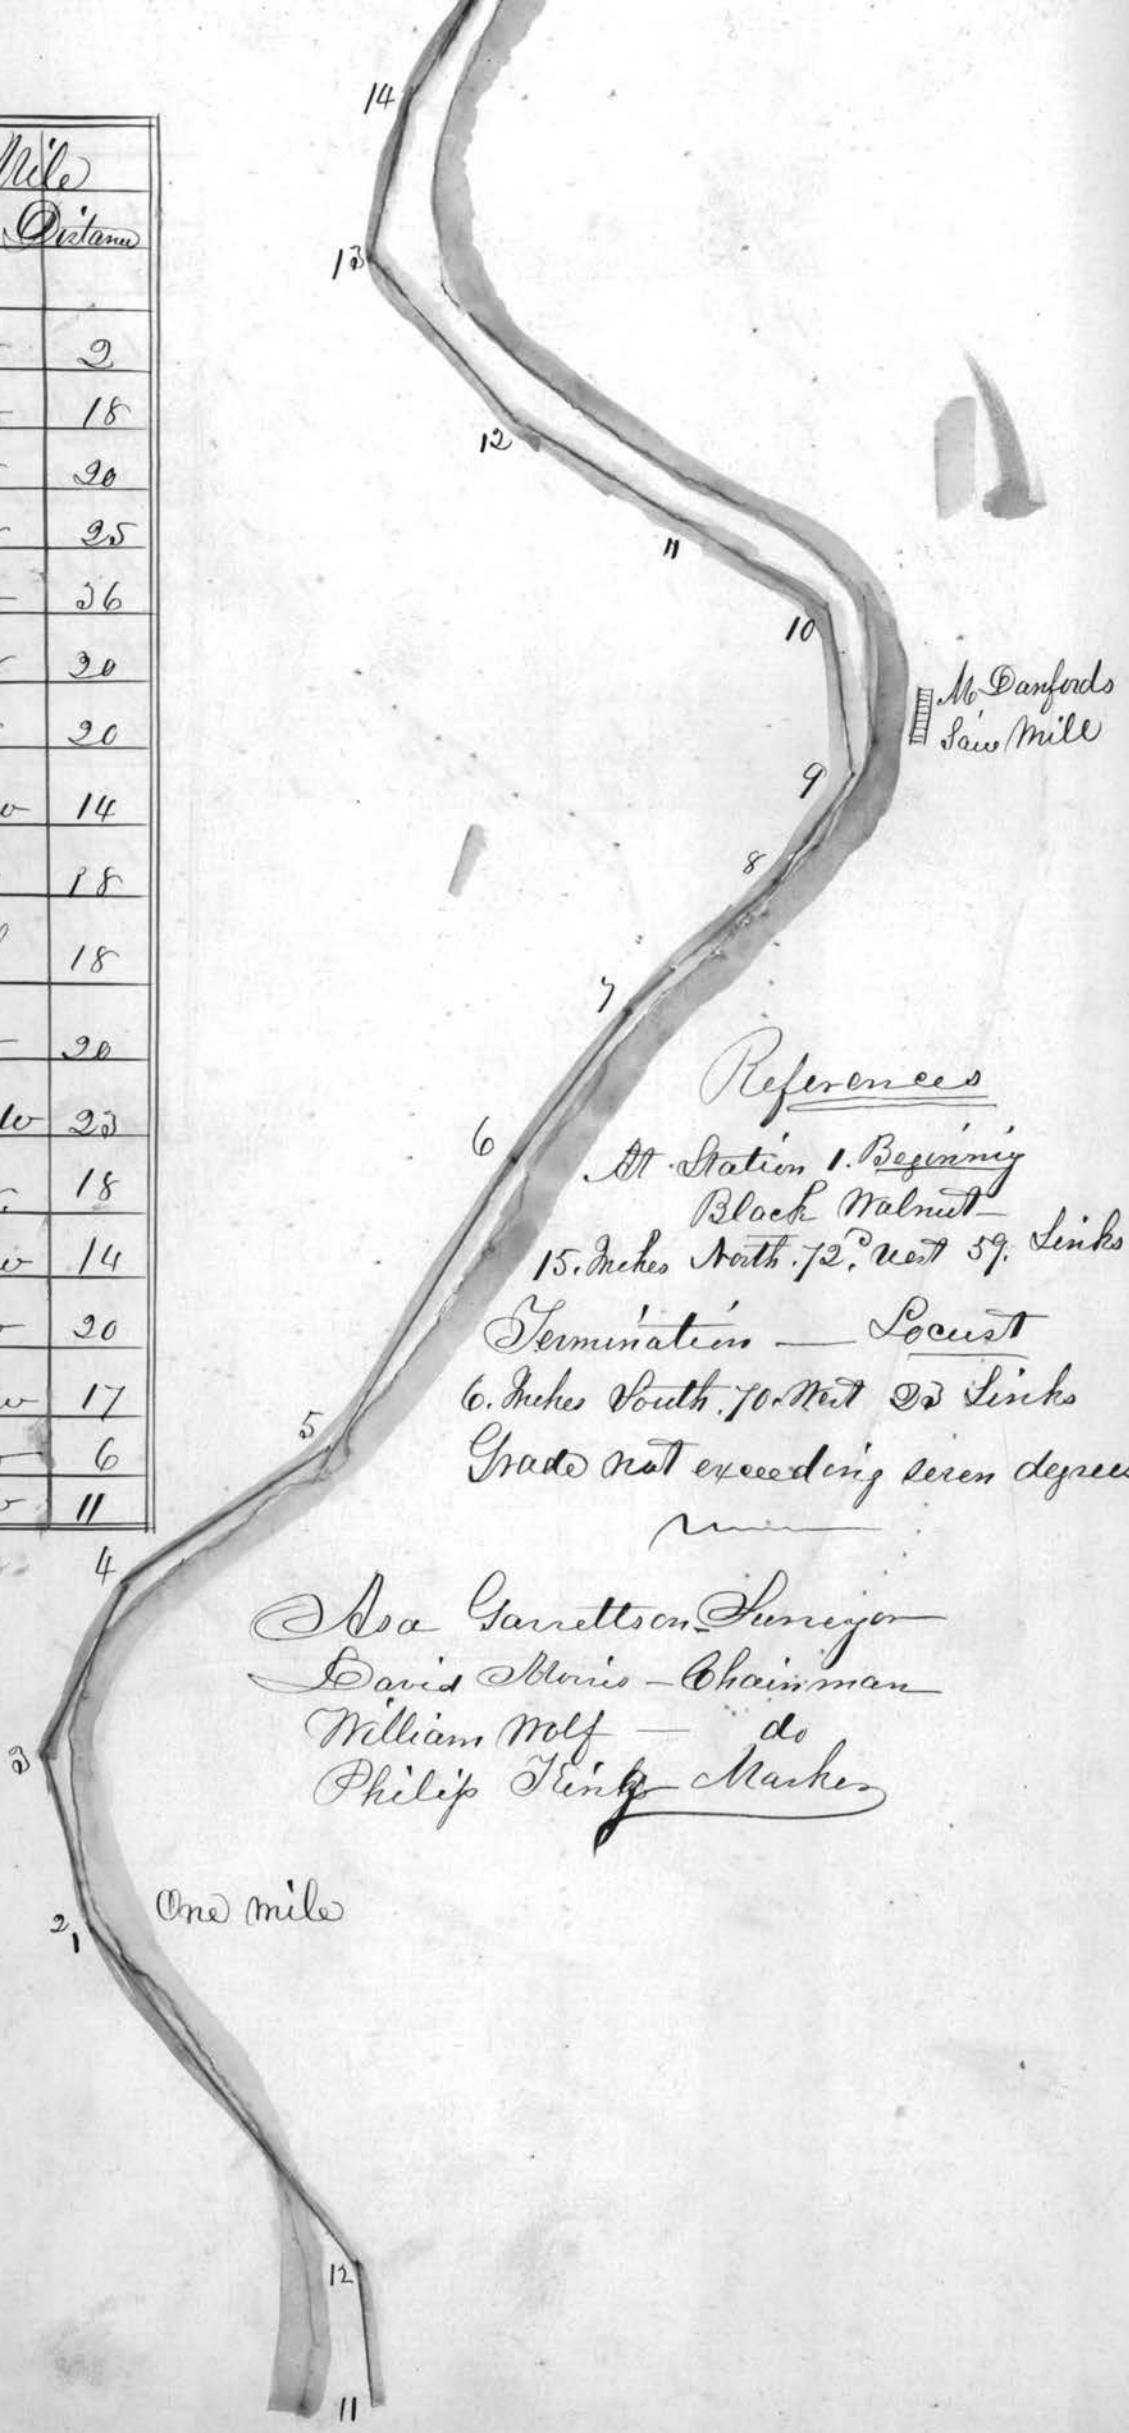 Mile
Distance
2
18
20
25
36
30
20
14
18
18
20
23
18
14
20
17
6
11
14
13
12
11
10
M Danfords
Saw Mill
9
8
7
6
References
At Station 1. Beginnig
Black Walnut
15. Inches North. 72.° West 59. Links
Termination — Locust
6. Inches South. 70. West 23 Links
Grade not exceeding seven degrees
5
4
Asa Garrettson - Surveyor
David Morris - Chainman
William Wolf — do
Philip King Marker
3
One mile
2
1
12
11